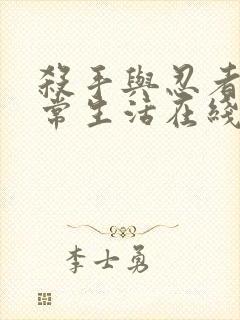 殺手與忍者
常生活在綫
李士勇